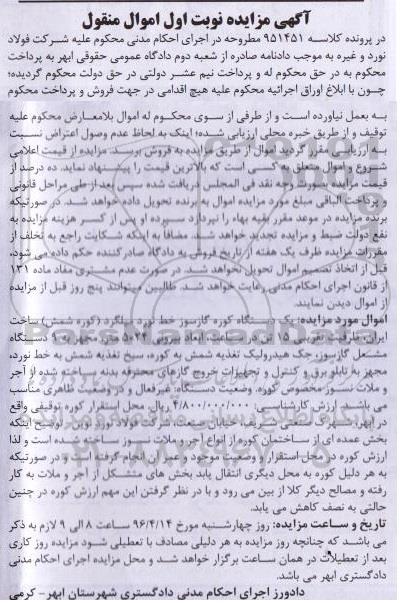 آگهی مزایده نوبت اول اموال منقول
در پرونده کلاسه ۹۵۱۴۵۱ مطروحه در اجرای احکام مدنی محکوم علیه شرکت فولاد
نورد و غیره به موجب دادنامه صادره از شعبه دوم دادگاه عمومی حقوقی ابهر به پرداخت
محکوم به در حق محکوم له و پرداخت نیم عشر دولتی در حق دولت محکوم گردیده؛
چون با ابلاغ اوراق اجرائیه محکوم علیه هیچ اقدامی در جهت فروش و پرداخت محکوم
به بعمل نیاورده است و از طرفی از سوی محکوم له اموال بلامعارض محکوم علیه
توقیف و از طریق خبره محلی ارزیابی شده؛ اینک به لحاظ عدم وصول اعتراض نسبت
به ارزیابی مقرر گردید اموال از طریق مزایده به فروش برسد. مزایده از قیمت اعلامی
شروع و اموال متعلق به کسی است که بالاترین قیمت را پیشنهاد نماید. ده درصد از
قیمت مزایده بصورت وجه نقد فی المجلس دریافت شده سپس بعد از طی مراحل قانونی
و پرداخت الباقی مبلغ مورد مزایده اموال به برنده تحویل داده خواهد شد. در صورتیکه
برنده مزایده در موعد مقرر بقیه بهاء را نپردازد سپرده او پس از کسر هزینه مزایده به
نفع دولت ضبط و مزایده تجدید خواهد شد. مضافا به اینکه شکایت راجع به تخلف از
مقررات مزایده ظرف یک هفته از تاریخ فروش به دادگاه صادرکننده حکم داده می شود،
قبل از اتخاذ تصمیم اموال تحویل نخواهد شد. در صورت عدم مشتری مفاد ماده ۱۳۱
از قانون اجرای احکام مدنی رعایت خواهد شد. طالبین میتوانند پنج روز قبل از مزایده
از اموال دیدن نمایند.
اموال مورد مزایده: یک دستگاه کوره گازسوز خط نورد میلگرد (کوره شمش) ساخت
ایران ظرفیت تقریبی ۱۵ تن در ساعت، ابعاد بیرونی متر، مجهز به دستگاه
مشعل گازسوز، جک هیدرولیک تغذیه شمش به کوره، سیخ تغذیه شمش به خط نورد،
مجهز به تابلو برق و کنترل و تجهیزات خروج گازهای محترقه بدنه ساخته شده از آجر
و ملات نسوز مخصوص کوره. وضعیت دستگاه: غیرفعال و در وضعیت ظاهری مناسب
می باشد. ارزش کارشناسی: ۴/۸۰۰/۰۰۰/۰۰۰ ریال محل استقرار کوره توقیفی واقع
در ابهر، شهرک صنعتی شریف، خیابان صنعت شرکت فولاد نورد می باشد. توضیح اینکه
بخش عمده ای از ساختمان کوره از انواع آجر و ملات نسوز ساخته شده است و لذا
ارزش کوره در محل استقرار و وضعیت موجود و عمر آن انجام گرفته است و در صورتیکه
به هر دلیل کوره به محل دیگری انتقال یابد بخش های متشکل از آجر و ملات به کار
رفته و مصالح دیگر کلا از بین می رود و با در نظر گرفتن این مهم ارزش کوره در چنین
حالتی به نصف کاهش می یابد.
تاریخ و ساعت مزایده: روز چهارشنبه مورخ ۹۶/۴/۱۴ ساعت ۸ الی ۹ لازم به ذکر
می باشد که چنانچه روز مزایده به هر دلیلی مصادف با تعطیلی شود مزایده روز کاری
بعد از تعطیلات در همان ساعت برگزار خواهد شد و محل مزایده اجرای احکام مدنی
دادگستری ابهر می باشد.
دادورز اجرای احکام مدنی دادگستری شهرستان ابهر- کرمی